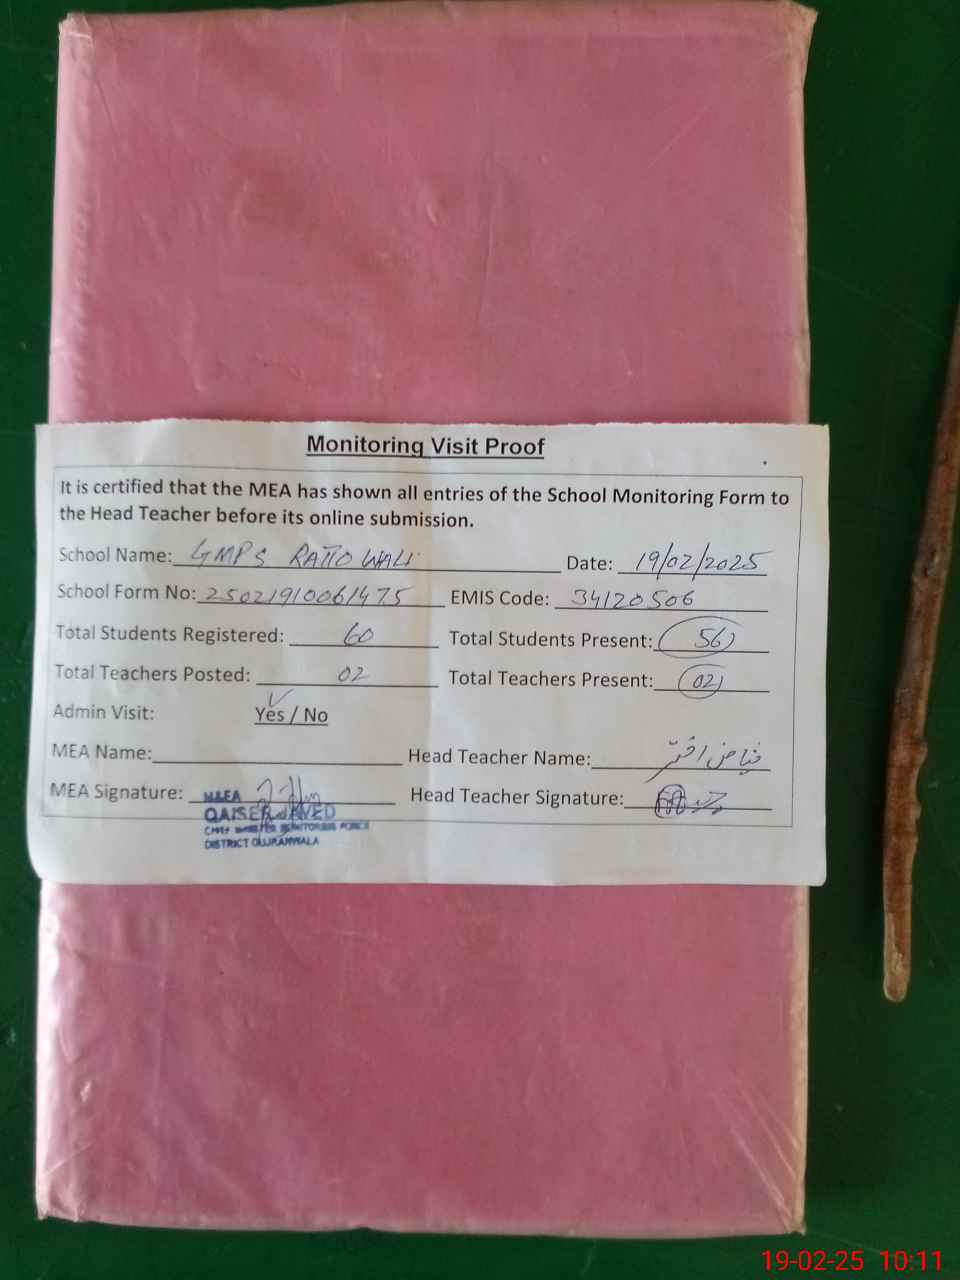 Monitoring Visit Proof
It is certified that the MEA has shown all entries of the School Monitoring Form to
the Head Teacher before its online submission.
School Name: GMPS RATTO WALI Date: 19/02/2025
School Form No: 25021910061475 EMIS Code: 34120506
Total Students Registered: 60 Total Students Present: 56
Total Teachers Posted: 02 Total Teachers Present: 02
Admin Visit: Yes / No
MEA Name: Head Teacher Name: فیاض اختر
MEA Signature: Head Teacher Signature:
M&EA
QAISER JAVED
CHIEF MINISTER MONITORING FORCE
DISTRICT GUJRANWALA
19-02-25 10:11